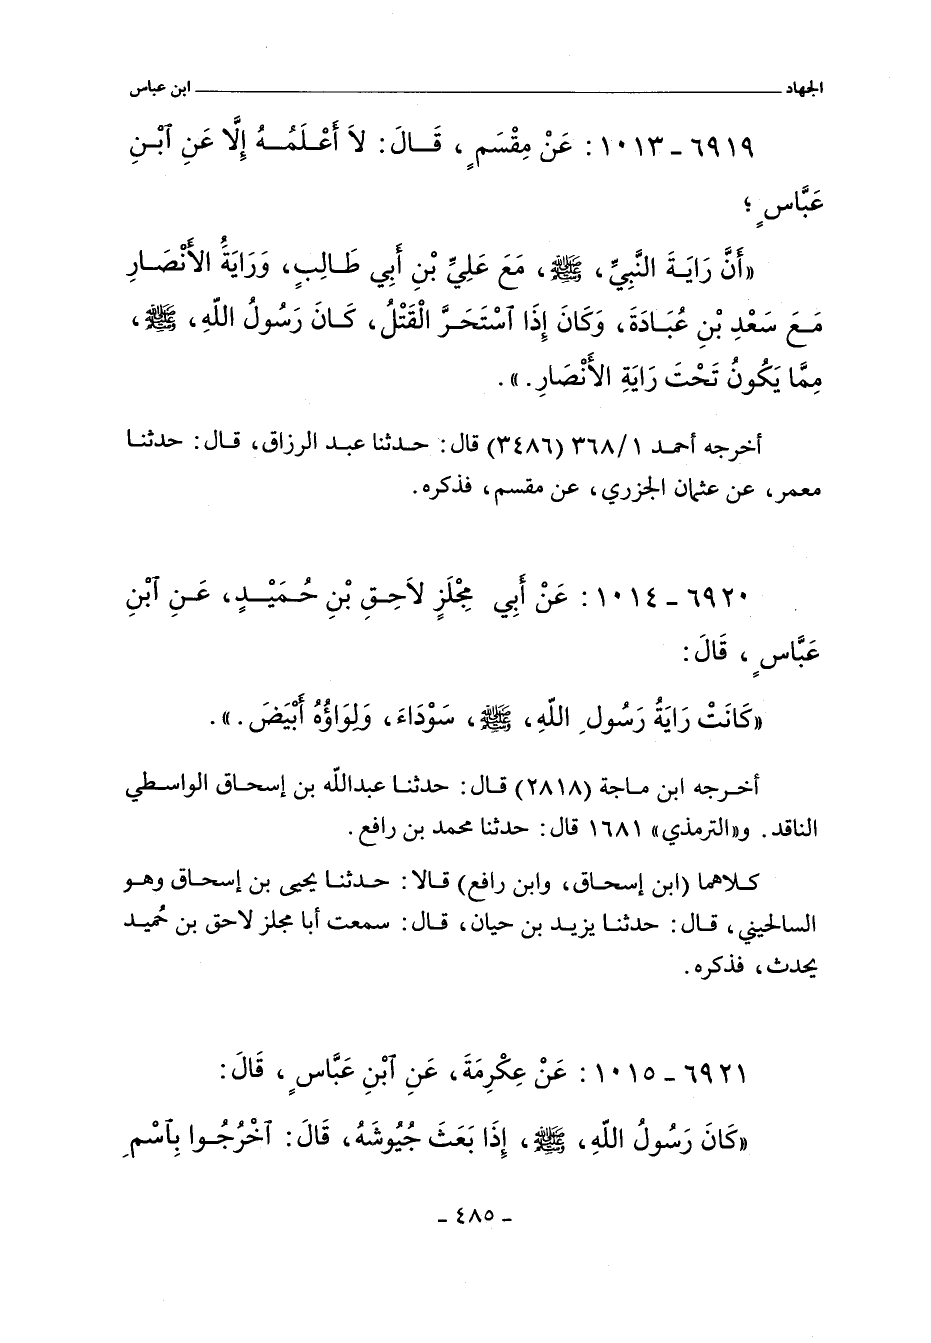 الجهاد ــــــــــــــــــــ ابن عباس
٦٩١٩ ـ ١٠١٣ : عَنْ مِقْسَمٍ ، قَـالَ : لاَ أَعْـلَمُـهُ إِلَّا عَنِ ٱبْـنِ
عَبَّاسٍ ؛
«أَنَّ رَايَـةَ النَّبِيِّ ، ﷺ ، مَعَ عَلِيِّ بْنِ أَبِي طَـالِبٍ ، وَرَايَةَُ الأَنْصَـارِ
مَـعَ سَعْدِ بْنِ عُبَـادَةَ ، وَكَانَ إِذَا ٱسْتَحَـرَّ الْقَتْلُ ، كَـانَ رَسُولُ اللّهِ ، ﷺ ،
مِمَّا يَكُونُ تَحْتَ رَايَةِ الأَنْصَارِ . » .
أخرجه أحمـد ١ /٣٦٨ (٣٤٨٦) قال : حـدثنا عبـد الرزاق ، قـال : حـدثنـا
معمر ، عن عثمان الجزري ، عن مقسم ، فذكره .
٦٩٢٠ ـ ١٠١٤ : عَنْ أَبِي مِجْلَزٍ لاَحِـقِ بْنِ حُـمَيْـدٍ ، عَـنِ ٱبْنِ
عَبَّاسٍ ، قَالَ :
«كَانَتْ رَايَةُ رَسُولِ اللّهِ ، ﷺ ، سَوْدَاءَ ، وَلِوَاؤُهُ أَبْيَضَ . » .
أخـرجه ابن مـاجة (٢٨١٨) قـال : حدثنـا عبداللّه بن إسحاق الواسـطي
الناقد . و«الترمذي» ١٦٨١ قال : حدثنا محمد بن رافع .
كـلاهما (ابن إسحـاق ، وابن رافع) قـالا : حـدثنـا يحيى بن إسحـاق وهـو
السالحيني ، قـال : حدثنـا يزيـد بن حيان ، قـال : سمعت أبا مجلز لاحق بن حُميـد
يحدث ، فذكره .
٦٩٢١ ـ ١٠١٥ : عَنْ عِكْرِمَةَ ، عَنِ ٱبْنِ عَبَّاسٍ ، قَالَ :
«كَانَ رَسُولُ اللّهِ ، ﷺ ، إِذَا بَعَثَ جُيُوشَهُ ، قَالَ : ٱخْرُجُـوا بِٱسْمِ
ـ ٤٨٥ ـ